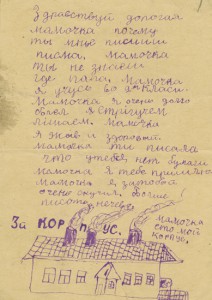 Здравствуй дорогая
мамочка почему
ты мне пишиш
писма. мамочка
ты не знаеш
где папа, мамочка
я учусь во 2м класи.
Мамочка я очень долго
болел я стригущем
лишаем. мамочка
я жив и здоровый.
мамочка ти писала
что у тебе нет бумаги
мамочка я тебе пришлю
мамочка я затобой
очень скучил. больше
писать нечево
За КОРПУС.
мамочка
ето мой
корпус.